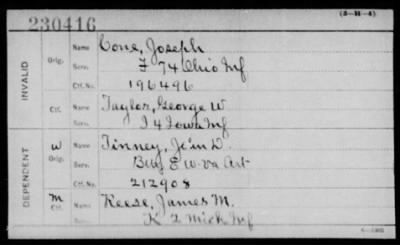 230416
(3-H-4)
INVALID
Orig. Name Cone, Joseph
Serv. F 74 Ohio Inf
Ctf. No. 196496
Ctf. Name Taylor, George W
Serv. I 4 Iowa Inf
DEPENDENT
W Orig. Name Tinney, Je'm D.
Serv. Batty E W-Va Art
Ctf. No. 212908
M Ctf. Name Reese, James M.
Serv. K 2 Mich Inf